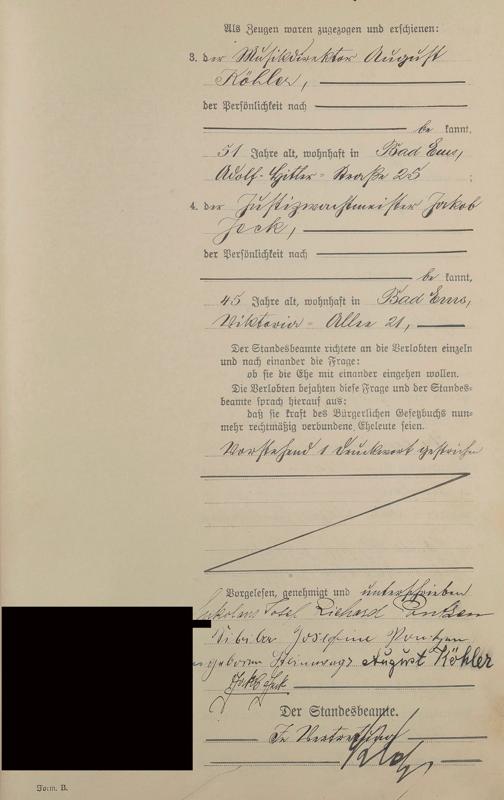 Als Zeugen waren zugezogen und erschienen:
3. der Musikdirektor August
Köhler,
der Persönlichkeit nach
be kannt,
51 Jahre alt, wohnhaft in Bad Ems,
Adolf-Hitler-Straße 25 ;
4. der Justizwachtmeister Jakob
Jeck,
der Persönlichkeit nach
be kannt,
45 Jahre alt, wohnhaft in Bad Ems,
Viktoria-Allee 21,
Der Standesbeamte richtete an die Verlobten einzeln
und nach einander die Frage:
ob sie die Ehe mit einander eingehen wollen.
Die Verlobten bejahten diese Frage und der Standes-
beamte sprach hierauf aus:
daß sie kraft des Bürgerlichen Gesetzbuchs nun-
mehr rechtmäßig verbundene Eheleute seien.
Vorstehend 1 Druckwort gestrichen
Vorgelesen, genehmigt und unterschrieben
Josef Richard
Josefine
geborene August Köhler
Jakob Jeck
Der Standesbeamte.
In Vertretung
Form. B.